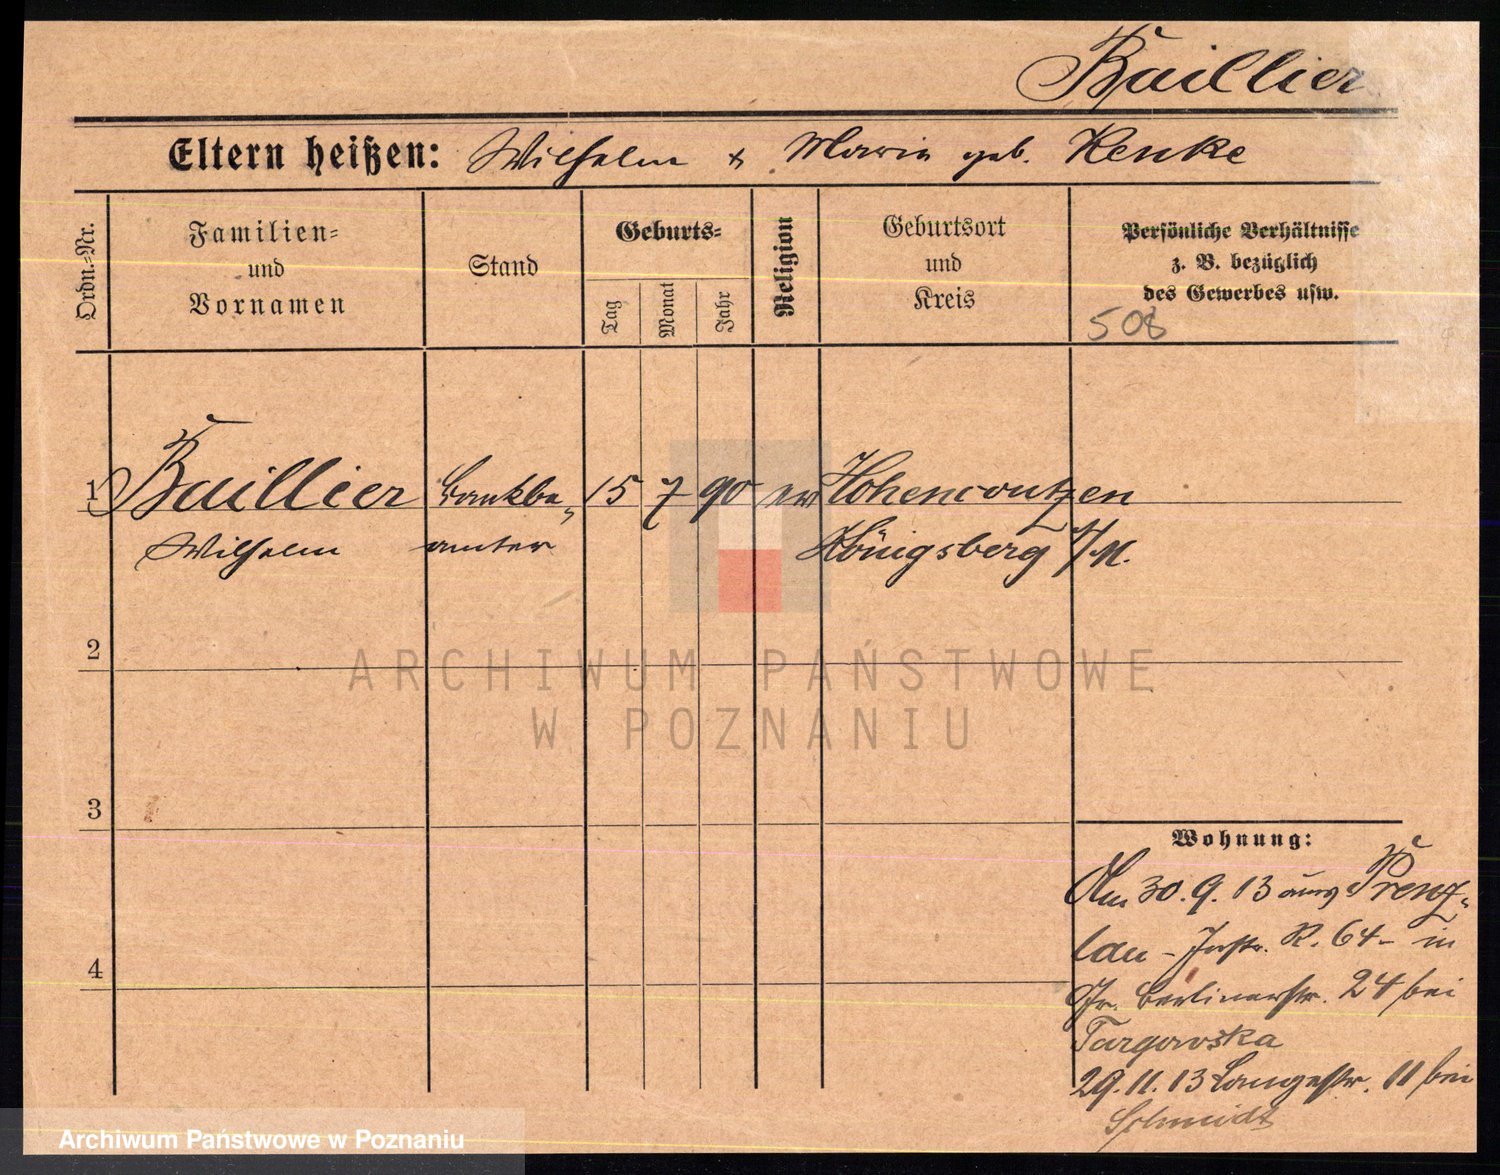 Baillier
Eltern heißen: Wilhelm & Marie geb. Henke
Ordn.-Nr.
Familien-
und
Vornamen
Stand
Geburts-
Tag
Monat
Jahr
Religion
Geburtsort
und
Kreis
Persönliche Verhältnisse
z. B. bezüglich
des Gewerbes usw.
508
1 Baillier Bankbe- 15 7 90 ev Hohenwutzen
Wilhelm amter Königsberg N/M.
2
3
4
ARCHIWUM PAŃSTWOWE
W POZNANIU
Wohnung:
Am 30.9.13 aus Prenz-
lau - Inftr. R. 64 - in
Gr. Berlinerstr. 24 bei
Targowska
29.11.13 Langestr. 11 bei
Schmidt
Archiwum Państwowe w Poznaniu